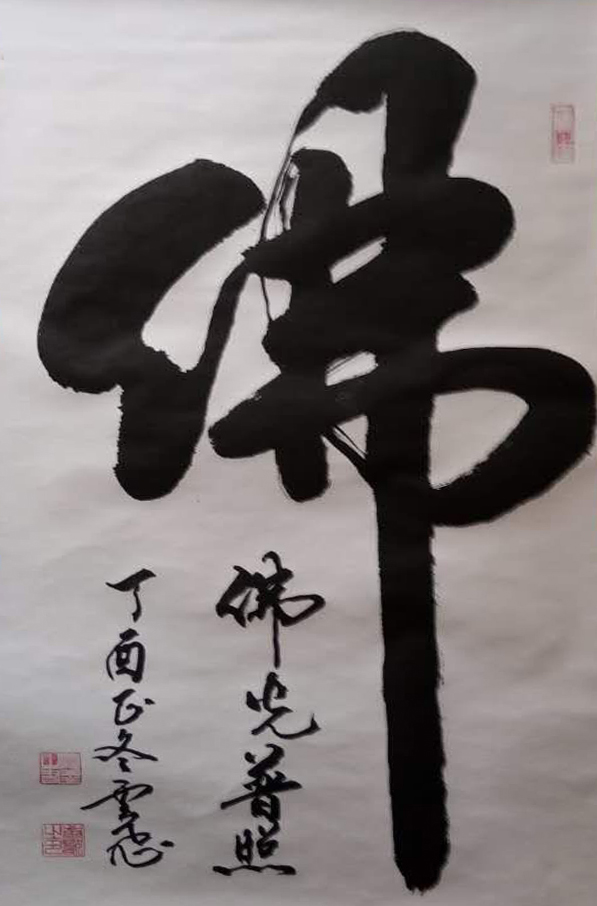 佛
佛光普照
丁酉正冬雲飛